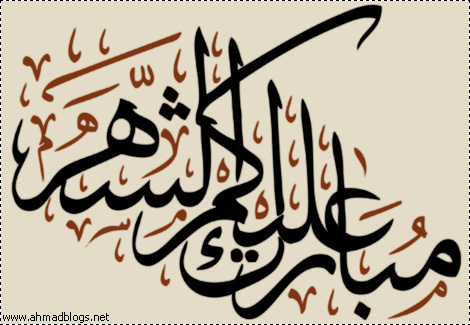 مبارك عليكم الشهر
www.ahmadblogs.net